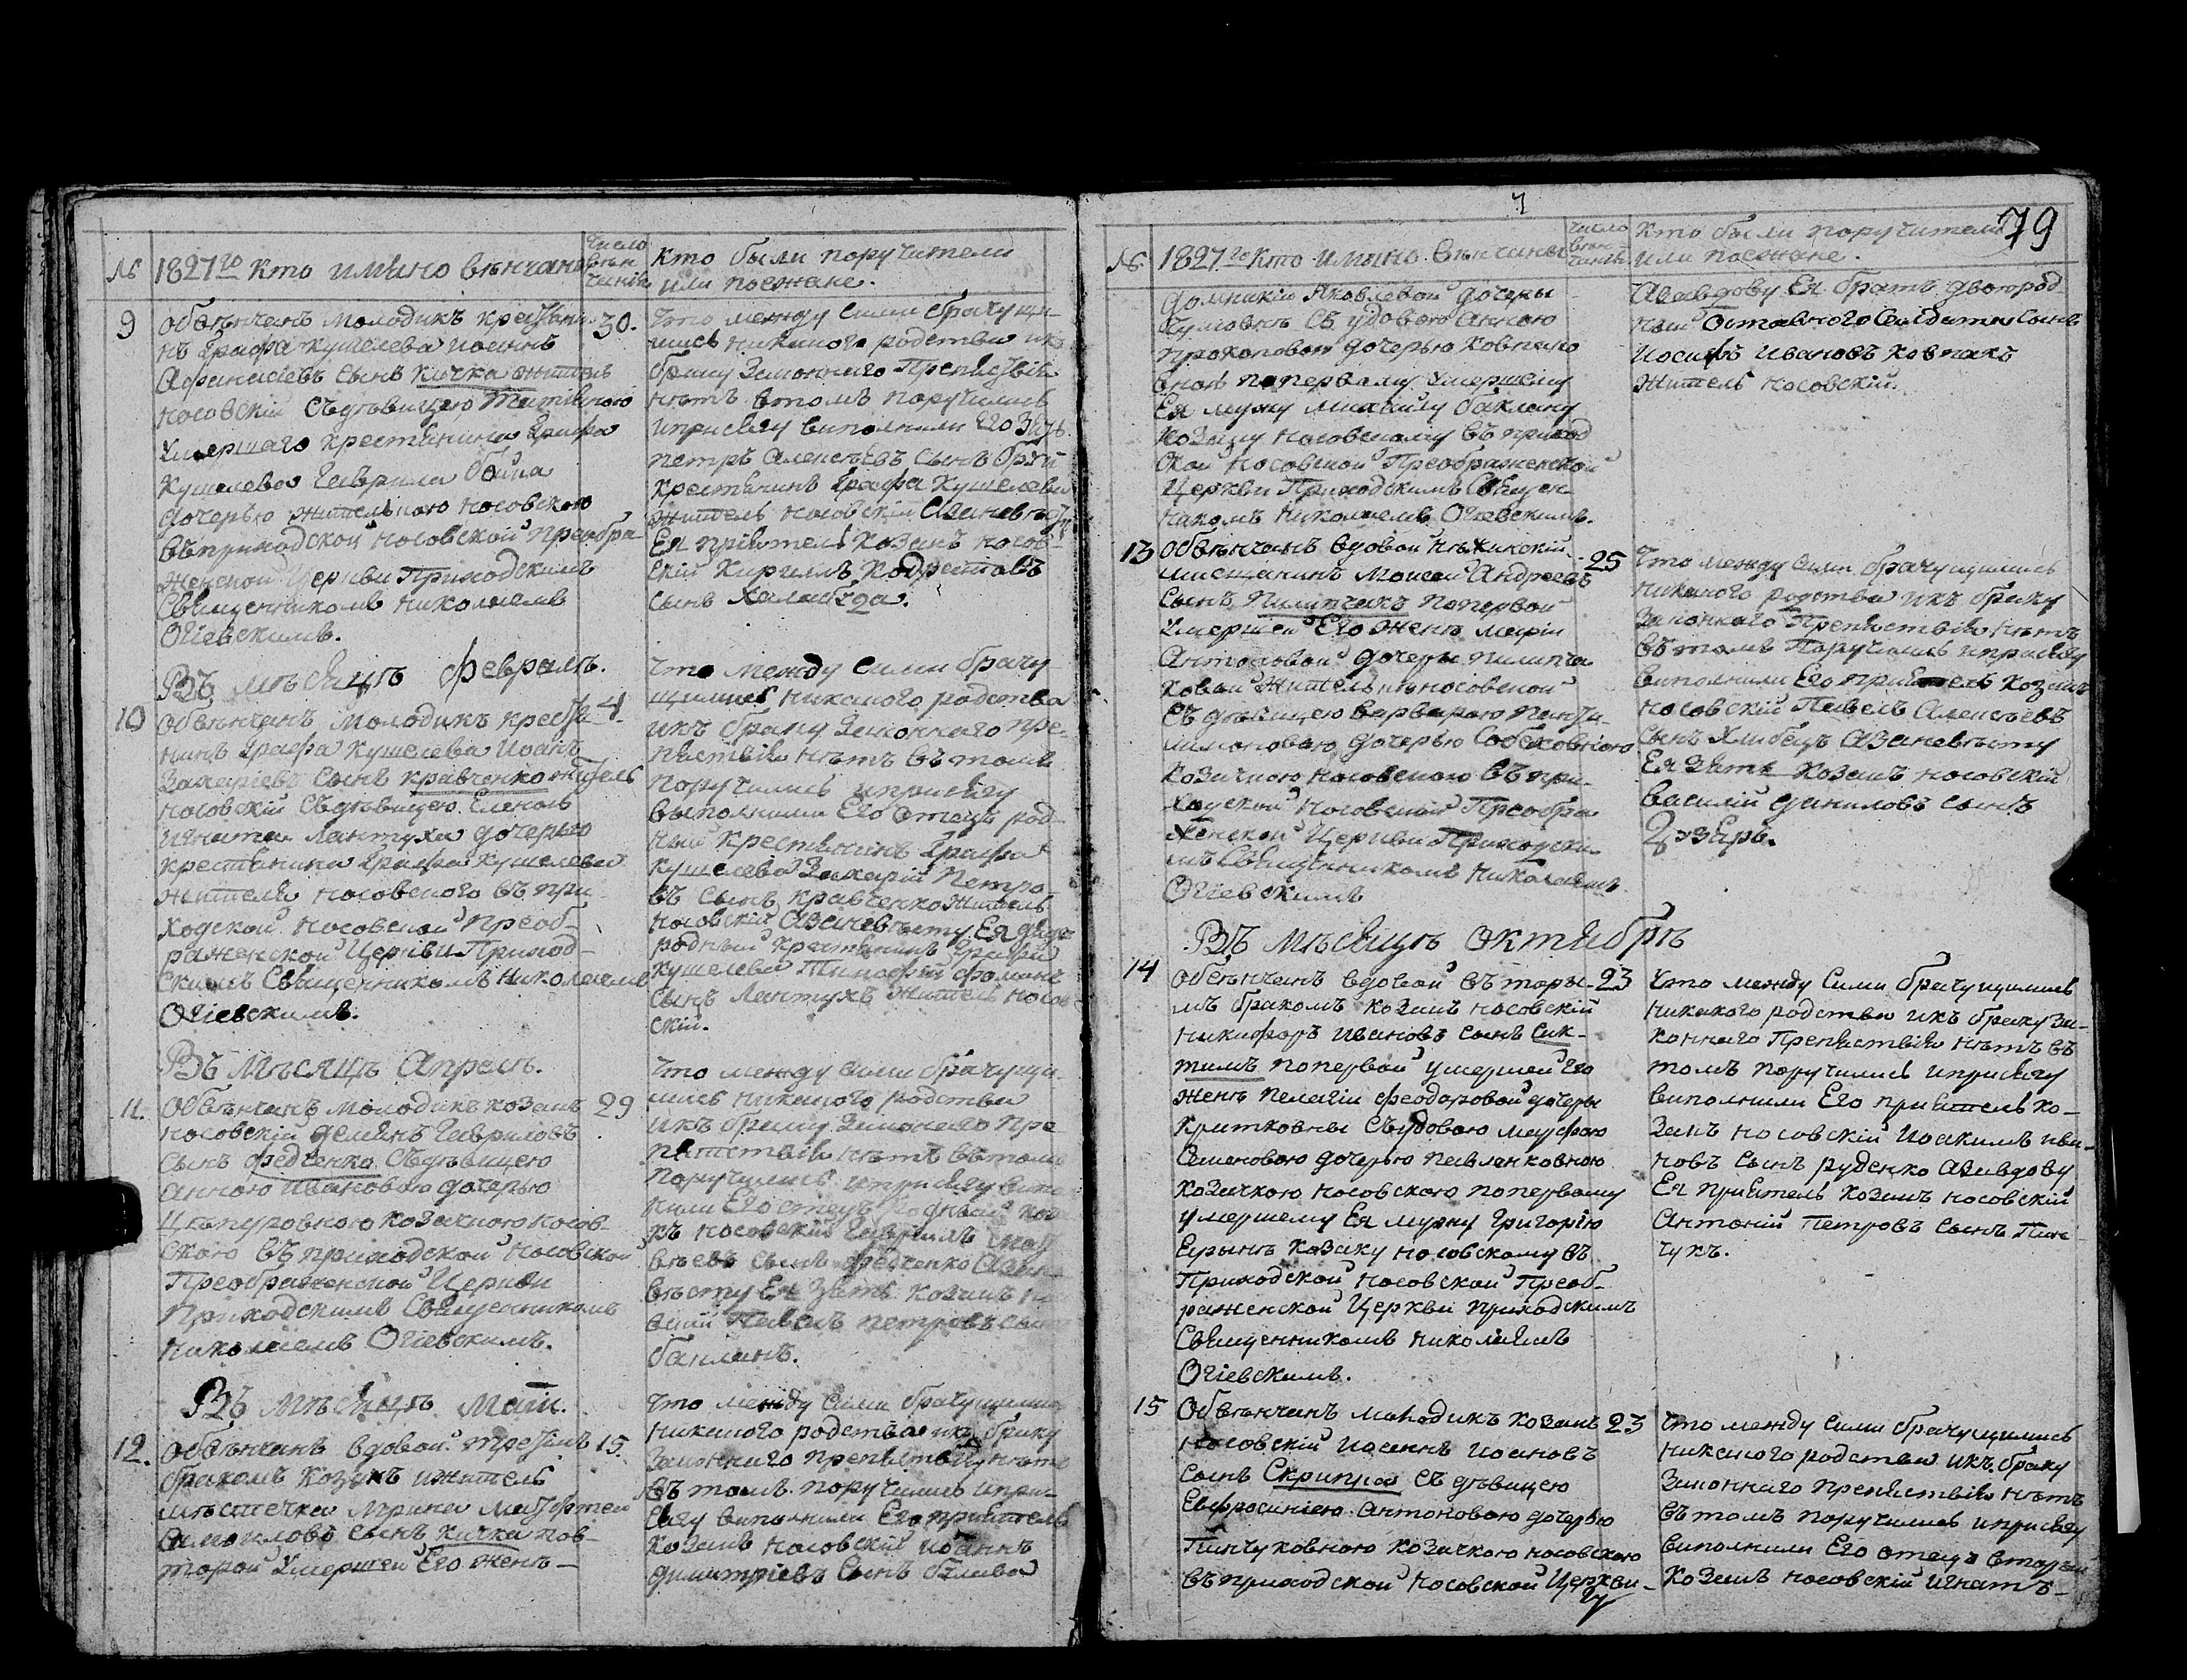 №
1827го Кто имяно венчанъ
Число
вѣн
чанія
Кто были поручители
или поезжане.
9
Обвѣнчанъ молодикъ крестяни
нъ Графа Кушелева Иоаннъ
Афанасіевъ сынъ Кичка житель
Носовскій съ дѣвицею
умершаго крестянина Графа
Кушелева Гаврила
дочерью жителькою Носовскою
въ приходской Носовской Преобра
женской Церкви Приходскимъ
Священникомъ Николаемъ
Огіевскимъ.
30.
Что между сими брачущи-
мись никакого родства и къ
браку Законного Препятствія
нѣтъ в томъ поручились
и присягу виполнили Его Зять
Петръ Алексѣевъ сынъ
крестянинъ Графа Кушелева
житель Носовскій
Ея пріятель козакъ Носов-
скій Кириллъ
сынъ Халабуда.
Въ мѣсяцѣ Февралѣ.
10
Обвѣнчанъ молодикъ крестя
нинъ Графа Кушелева Иоанъ
Захаріевъ сынъ Кравченко житель
Носовскій съ дѣвицею Еленою
Игната Лантуха дочерью
крестянина Графа Кушелева
жителя Носовского въ при
ходской Носовской Преоб-
раженской Церкви Приход-
скимъ Священникомъ Николаемъ
Огіевскимъ.
4.
Что между сими брачу
щимись никакого родства
и къ браку Законного Пре-
пятствія нѣтъ въ томъ
поручились и присягу
выполнили Его отецъ род-
ный крестянинъ Графа
Кушелева Захарій Петро-
въ сынъ Кравченко житель
Носовскій А за невѣсту Ея дядя
родный крестянинъ Графа
Кушелева Тимофѣй Фоминъ
сынъ Лантухъ житель Носов
скій.
Въ мѣсяцѣ Апрелѣ.
11.
Обвѣнчанъ молодикъ козакъ
Носовскій Демянъ Гавриловъ
сынъ Федченко съ дѣвицею
Анною Ивановою дочерью
козачкою Носов-
скою въ приходской Носовской
Преображенской Церкви
Приходскимъ Священникомъ
Николаемъ Огіевскимъ.
29
Что между сими брачущи
мись никакого родства
и къ браку Законного Пре
пятствія нѣтъ въ томъ
поручились и присягу випо
нили Его отецъ родный коз
къ Носовскій Гаврилъ
вѣевъ сынъ Федченко А за не
вѣсту Ея Зять козакъ Но
скій Павелъ Петровъ сынъ
Бакланъ.
Въ мѣсяцѣ Маіи.
12.
Обвѣнчанъ вдовой третімъ
бракомъ козакъ житель
мѣстечка Мрина
Самоиловъ сынъ Кичка по в-
торой умершей Его женѣ-
15.
Что между сими брачущимись
никакого родства и къ браку
Законного препятствія нѣтъ
въ томъ поручились и при-
сягу виполнили Его пріятель
козакъ Носовскій Иоаннъ
Димитріевъ сынъ
79
№.
1827го Кто имяно вѣнчаны
Число
вѣн-
чанія
Кто были поручители
или поезжане.
Домникіи Яковлевой дочеры
съ удовою Анною
Прокоповою дочерью Ковпако
вною по первому умершему
Ея мужу Михаилу Баклану
козаку Носовскому въ приход
ской Носовской Преображенской
Церкви Приходскимъ Священ
никомъ Николаемъ Огіевскимъ.
А за вдову Ея братъ двоюрод
ный Отставного Салдата сынъ
Иосифъ Ивановъ Ковпакъ
житель Носовскій.
13
Обвѣнчанъ вдовой Нѣжинскій
мисщанинъ Моисей Андреевъ
сынъ Пилипчакъ по первой
умершей Его женѣ Маріи
Антоновой дочеры Пилипча
ковой жительки Носовской
съ дѣвицею Варварою Панте-
лимоновою дочерью
козачкою Носовскою въ при-
ходской Носовской Преобра
женской Церкви Приходски-
мъ Священникомъ Николаемъ
Огіевскимъ
25
Что между сими брачущимись
никакого родства и къ браку
Законного Препятствія нѣтъ
въ томъ Поручились и присягу
виполнили Его пріятель козакъ
Носовскій Павелъ Алексѣевъ
сынъ Хлибецъ А за невѣсту
Ея Зять козакъ Носовскій
Василій Даниловъ сынъ
Въ мѣсяцѣ Октябрѣ
14
Обвѣнчанъ вдовой въторы-
мъ бракомъ козакъ Носовскій
Никифоръ Ивановъ сынъ Сик-
тимъ по первой умершей Его
женѣ Пелагіи Феодоровой дочеры
Критковны съ удовою Марфою
Семеновою дочерью Павленковною
козачкою Носовскою по первому
умершему Ея мужу Григорію
козаку Носовскому въ
Приходской Носовской Преоб-
раженской Церкви приходскимъ
Священникомъ Николаемъ
Огіевскимъ.
23
Что между сими брачущимись
никакого родства и къ браку За-
конного Препятствія нѣтъ въ
томъ поручились и присягу
виполнили Его пріятель ко-
закъ Носовскій Иоакимъ Ива-
новъ сынъ Руденко А за вдову
Ея пріятель козакъ Носовскій
Антоній Петровъ сынъ Пин-
чукъ.
15
Обвѣнчанъ молодикъ козакъ
Носовскій Иоаннъ Иоановъ
сынъ Скрипка съ дѣвицею
Евфросиніею Антоновою дочерью
Пинчуковною козачкою Носовскою
въ приходской Носовской Церкви-
23
Что между сими брачущимись
никакого родства и къ браку
Законного препятствія нѣтъ
въ томъ поручились и присягу
виполнили Его отецъ вторый
козакъ Носовскій Игнатъ-